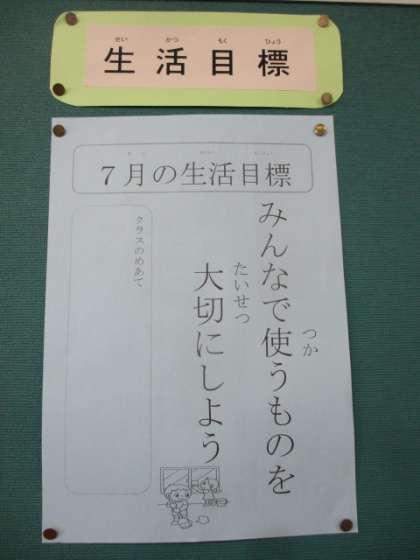 せい かつ もく ひょう
生活目標
7月の生活目標
みんなで使うものを
つか
大切にしよう
たいせつ
クラスのめあて